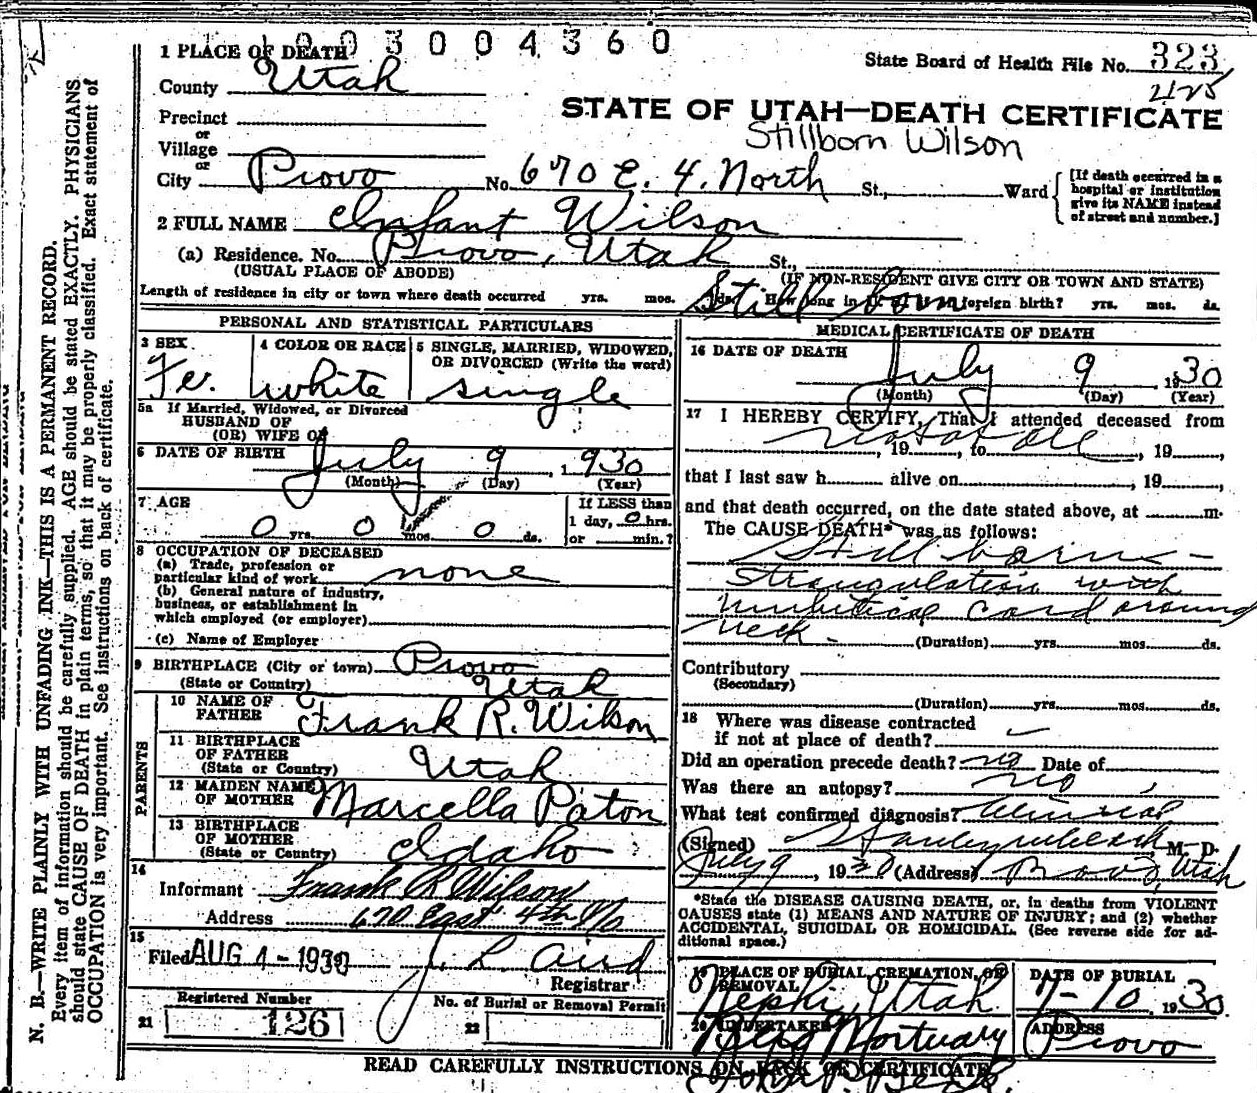 1003004360
State Board of Health File No. 323
425
STATE OF UTAH—DEATH CERTIFICATE
Stillborn Wilson
1 PLACE OF DEATH
County Utah
Precinct
or
Village
or
City Provo No. 670 E. 4. North St., Ward
[If death occurred in a
hospital or institution
give its NAME instead
of street and number.]
2 FULL NAME Infant Wilson
(a) Residence. No. Provo, Utah St.,
(USUAL PLACE OF ABODE) (IF NON-RESIDENT GIVE CITY OR TOWN AND STATE)
Length of residence in city or town where death occurred yrs. mos. ds. How long in U. S. if foreign birth? yrs. mos. ds.
Still born
PERSONAL AND STATISTICAL PARTICULARS
3 SEX
Fe.
4 COLOR OR RACE
white
5 SINGLE, MARRIED, WIDOWED,
OR DIVORCED (Write the word)
single
5a If Married, Widowed, or Divorced
HUSBAND OF
(OR) WIFE OF
6 DATE OF BIRTH July 9, 1930
(Month) (Day) (Year)
7 AGE
0 yrs. 0 mos. 0 ds.
If LESS than
1 day, 0 hrs.
or min.?
8 OCCUPATION OF DECEASED
(a) Trade, profession or
particular kind of work none
(b) General nature of industry,
business, or establishment in
which employed (or employer)
(c) Name of Employer
9 BIRTHPLACE (City or town) Provo
(State or Country) Utah
PARENTS
10 NAME OF
FATHER Frank R. Wilson
11 BIRTHPLACE
OF FATHER
(State or Country) Utah
12 MAIDEN NAME
OF MOTHER Marcella Paton
13 BIRTHPLACE
OF MOTHER
(State or Country) Idaho
14
Informant Frank R Wilson
Address 670 East 4th No
15
Filed AUG 4 - 1930 J. L. Aird
Registrar
Registered Number
21 126
No. of Burial or Removal Permit
22
MEDICAL CERTIFICATE OF DEATH
16 DATE OF DEATH
July 9 1930
(Month) (Day) (Year)
17 I HEREBY CERTIFY, That I attended deceased from
not at all, 19, to, 19,
that I last saw h alive on, 19,
and that death occurred, on the date stated above, at m.
The CAUSE DEATH* was as follows:
Still born -
Strangulation with
umbilical cord around
neck - (Duration) yrs. mos. ds.
Contributory
(Secondary)
(Duration) yrs. mos. ds.
18 Where was disease contracted
if not at place of death?
Did an operation precede death? no Date of
Was there an autopsy? no
What test confirmed diagnosis? clinical
(Signed) M. D.
July 9, 1930 (Address) Provo, Utah
*State the DISEASE CAUSING DEATH, or, in deaths from VIOLENT
CAUSES state (1) MEANS AND NATURE OF INJURY; and (2) whether
ACCIDENTAL, SUICIDAL OR HOMICIDAL. (See reverse side for ad-
ditional space.)
19 PLACE OF BURIAL, CREMATION, OR
REMOVAL
Nephi, Utah
DATE OF BURIAL
7-10, 1930
20 UNDERTAKER
Mortuary
ADDRESS
Provo
READ CAREFULLY INSTRUCTIONS ON BACK OF CERTIFICATE
N. B.—WRITE PLAINLY WITH UNFADING INK—THIS IS A PERMANENT RECORD.
Every item of information should be carefully supplied. AGE should be stated EXACTLY. PHYSICIANS
should state CAUSE OF DEATH in plain terms, so that it may be properly classified. Exact statement of
OCCUPATION is very important. See instructions on back of certificate.